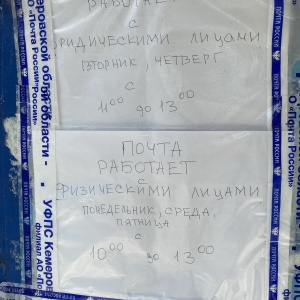 РАБОТАЕТ
С
ЮРИДИЧЕСКИМИ ЛИЦАМИ
ВТОРНИК, ЧЕТВЕРГ
С
11⁰⁰ до 13⁰⁰
ПОЧТА
РАБОТАЕТ
С
ФИЗИЧЕСКИМИ ЛИЦАМИ
ПОНЕДЕЛЬНИК, СРЕДА,
ПЯТНИЦА
С
10⁰⁰ до 13⁰⁰
УФПС Кемеров
филиал АО «По
еровской области -
АО «Почта России»
ПОЧТА РОССИИ